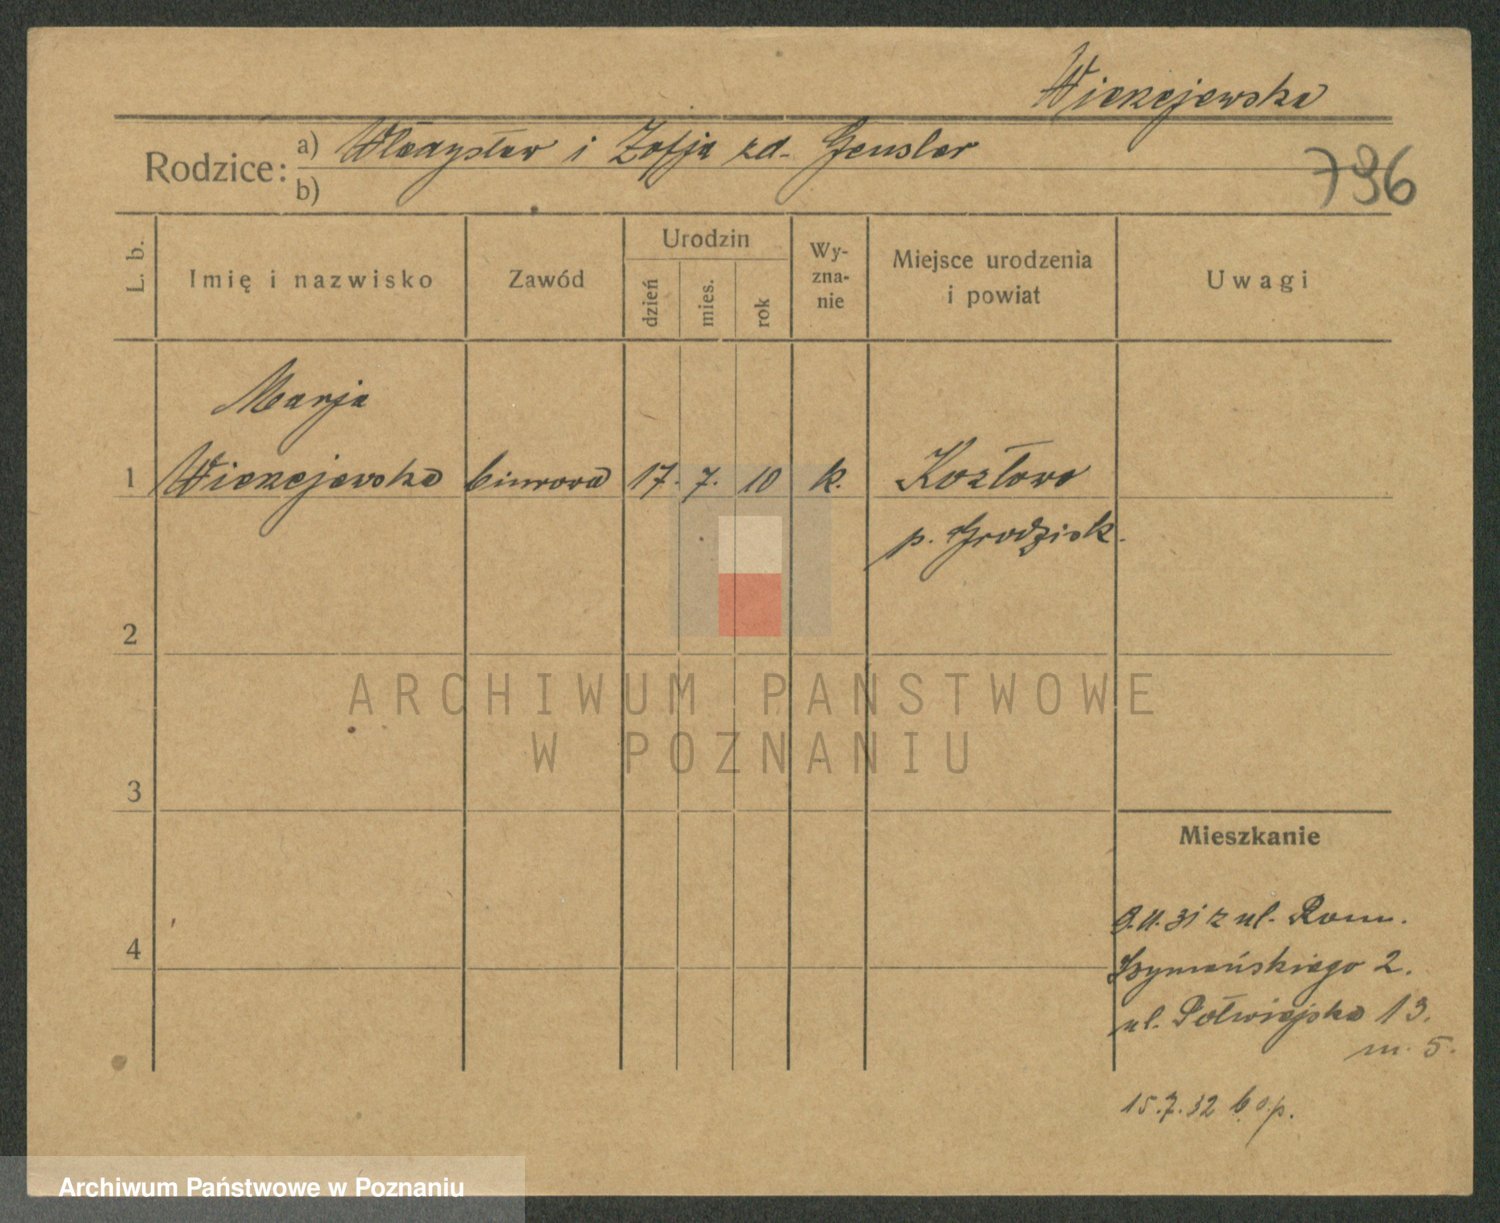 Wierzejewska
Rodzice: a) Władysław i Zofja zd. Gensler
b)
796
L. b. Imię i nazwisko Zawód Urodzin dzień mies. rok Wy-zna-nie Miejsce urodzenia i powiat Uwagi
Marja
1 Wierzejewska biurowa 17. 7. 10 k. Kozłowo
p. Grodzisk.
2
ARCHIWUM PAŃSTWOWE
W POZNANIU
3
Mieszkanie
9.11.31 z ul. Rom.
4
Szymańskiego 2.
ul. Półwiejska 13.
m. 5.
15.7.32 b.o.p.
Archiwum Państwowe w Poznaniu